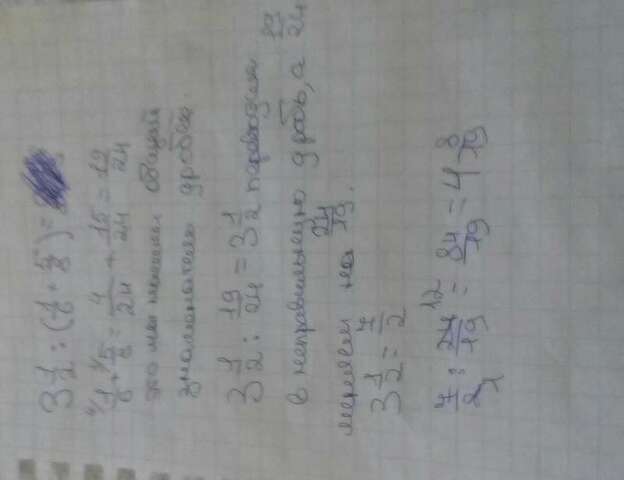 3 1/2 : (1/6 + 5/8) =
1/6 + 5/8 = 4/24 + 15/24 = 19/24
это мы нашли общий
знаменатель дробей.
3 1/2 : 19/24 = 3 1/2 переводим 19/24
в неправильную дробь, а
меняем на 24/19.
3 1/2 = 7/2
7/2 : 24/19 = 84/19 = 4 8/19